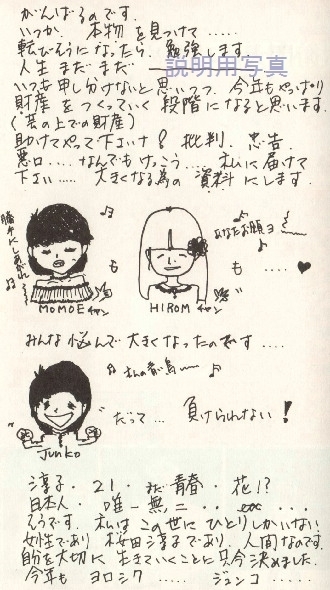 がんばるのです.
いつか、本物を見つけて……
転びそうになったら、勉強します.
人生 まだまだ ――
説明用写真
いつも申し分けないと思いつつ、今年もやっぱり
財産をつくっていく段階になると思います.
(芸の上での財産)
助けてやって下さいナ! 批判、忠告、
悪口……なんでもけっこう……私に届けて
下さい…… 大きくなる為の資料にします.
も
あなたお願ヨ
も ……♥
MOMOEチャン
HIROMIチャン
みんな悩んで大きくなったのです……
私の青い鳥
JUNKO
だって… 負けられない!
淳子・21・まだ青春・花!?
日本人・唯一無二・・etc……
そうです. 私はこの世にひとりしかいない
女性であり 桜田淳子であり、人間なのです.
自分を大切に生きていくことに只今決めました.
今年も ヨロシク…… ジュンコ……